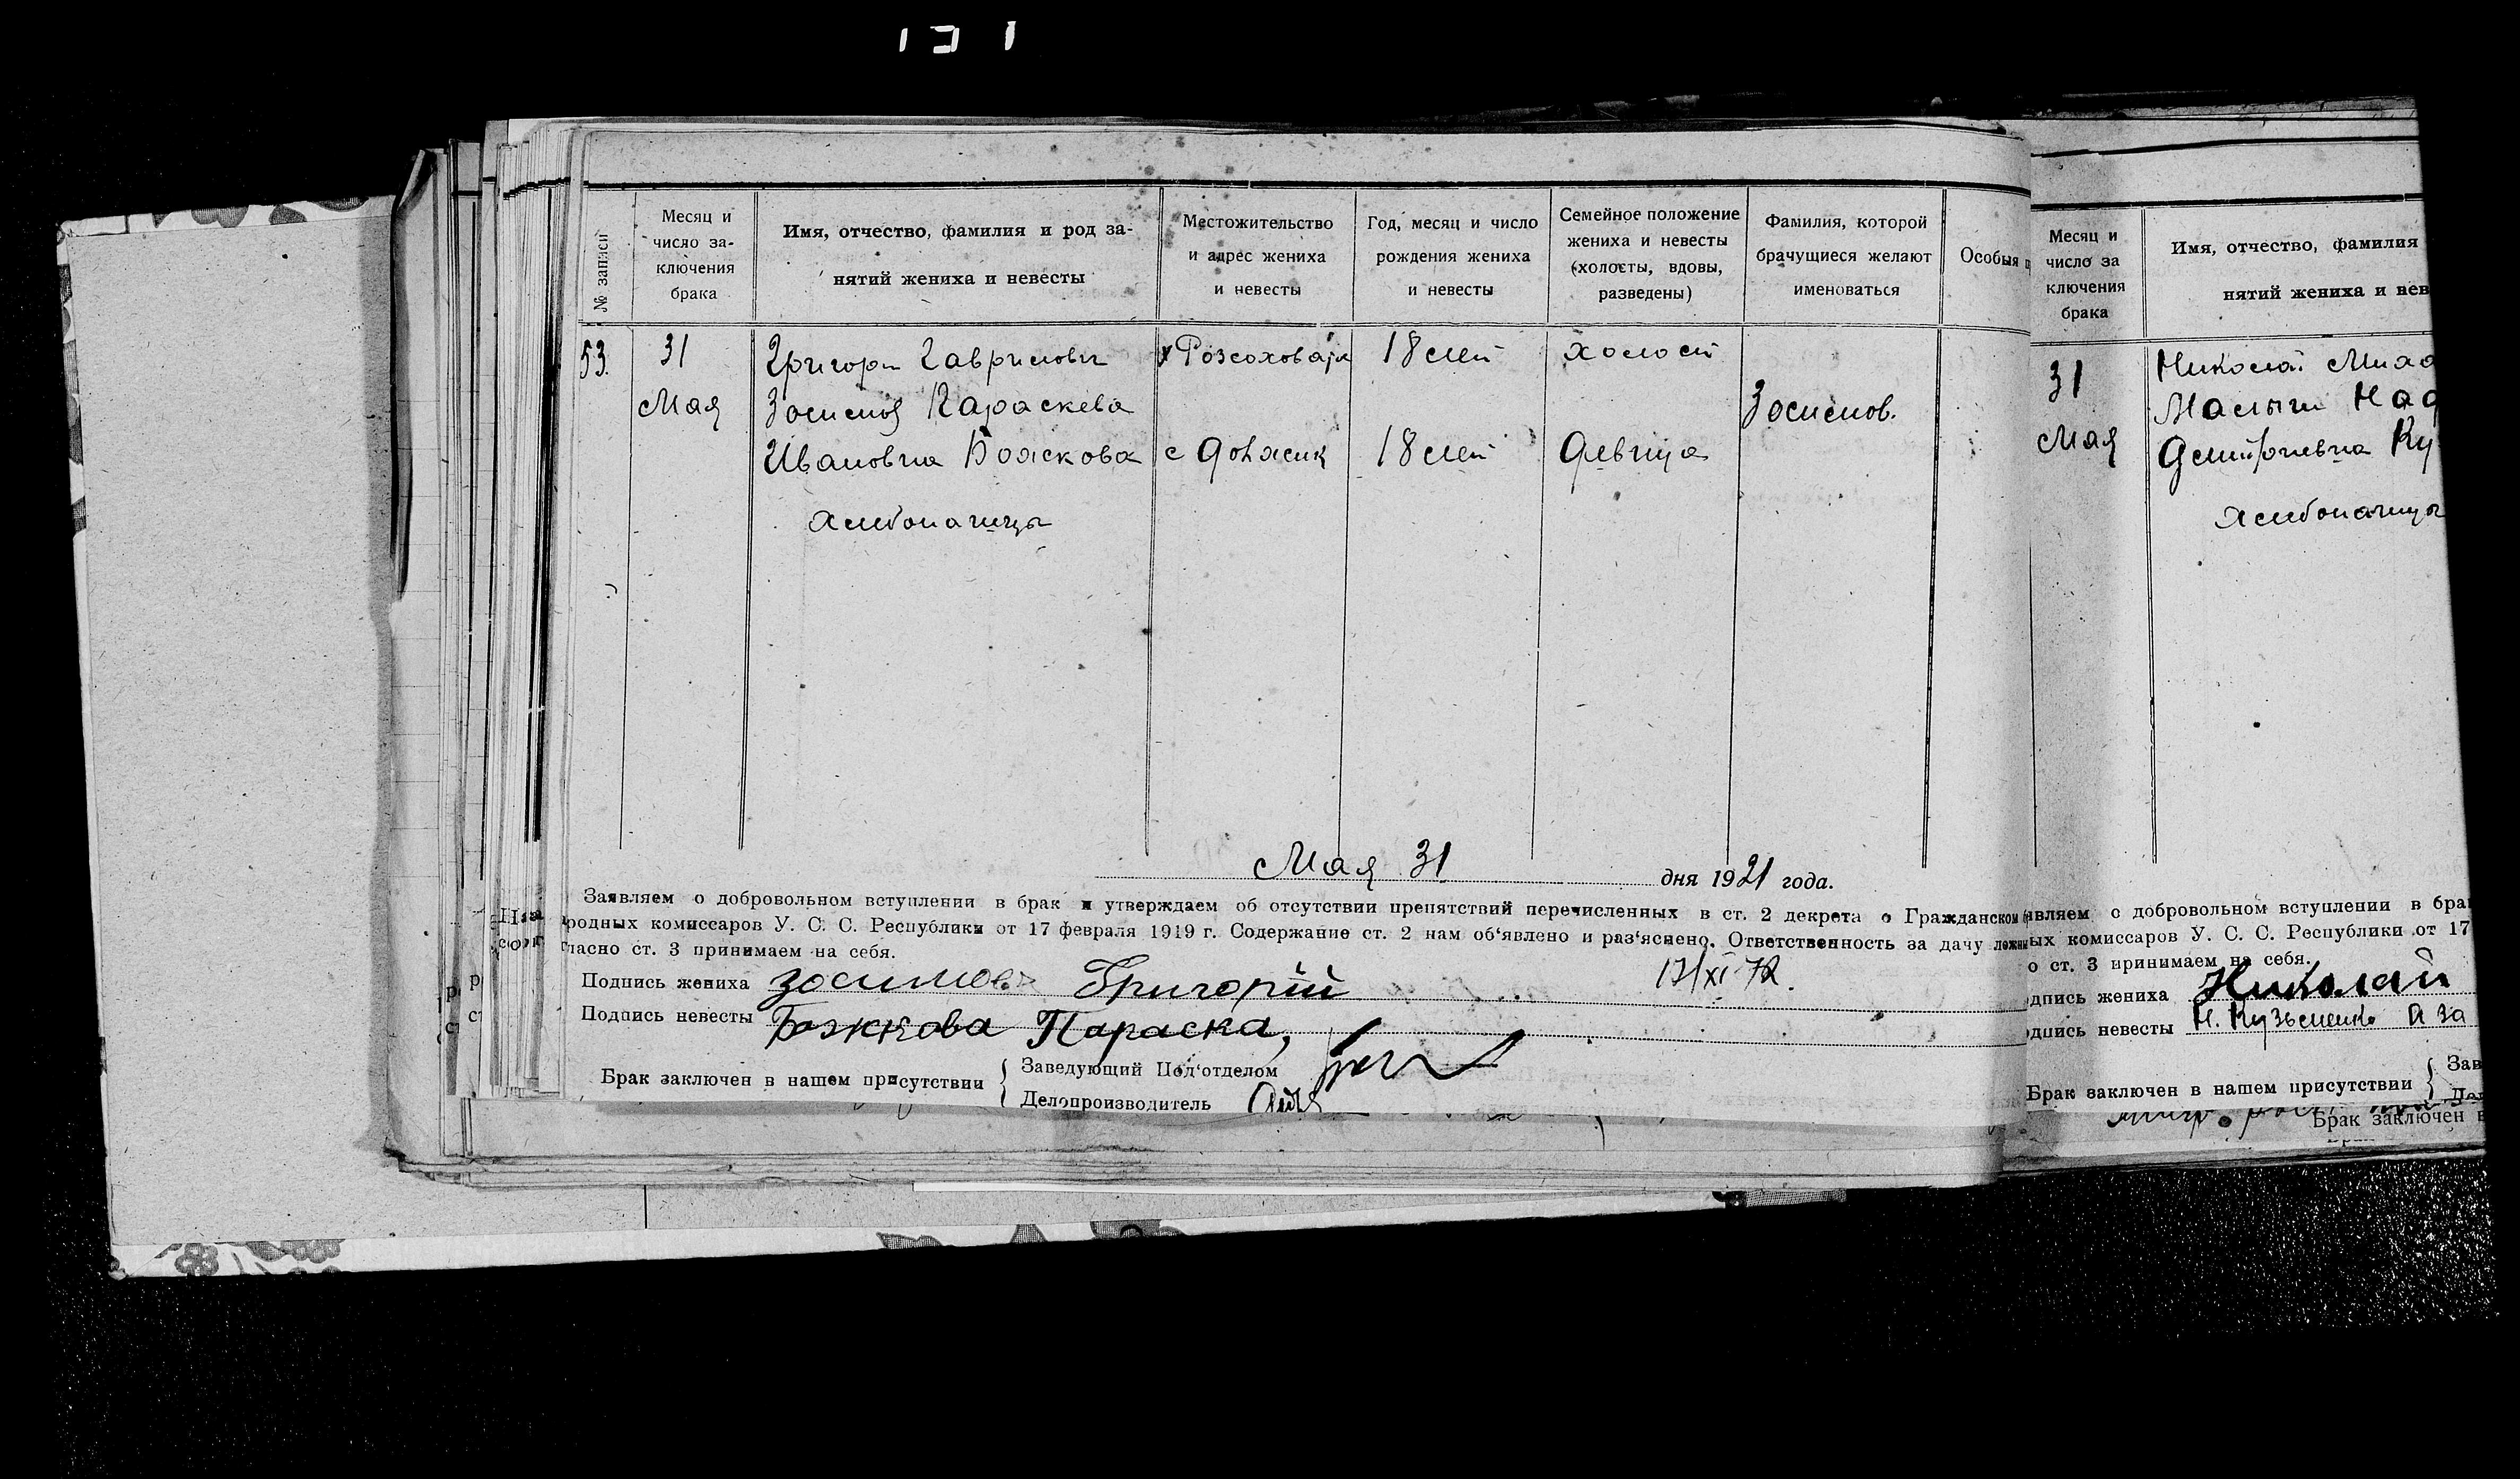 131
№ записи
Месяц и
число за-
ключения
брака
Имя, отчество, фамилия и род за-
нятий жениха и невесты
Местожительство
и адрес жениха
и невесты
Год, месяц и число
рождения жениха
и невесты
Семейное положение
жениха и невесты
(холосты, вдовы,
разведены)
Фамилия, которой
брачущиеся желают
именоваться
Особыя
53.
31
Мая
Григори Гаврилович
Зосимов Параскева
Ивановна Божкова
хлибопашцы
х Розсоховата
с
18 лет
18 лет
холост
девица
Зосимов.
Мая 31
дня 1921 года.
Заявляем о добровольном вступлении в брак и утверждаем об отсутствии препятствий перечисленных в ст. 2 декрета о Гражданском
родных комиссаров У. С. С. Республики от 17 февраля 1919 г. Содержание ст. 2 нам об'явлено и раз'яснено. Ответственность за дачу
ласно ст. 3 принимаем на себя.
17/XI 72.
Подпись жениха Зосимов Григорій
Подпись невесты Божкова Параска,
Брак заключен в нашем присутствии
Заведующий Под'отделом
Делопроизводитель
Месяц и
число за
ключения
брака
Имя, отчество, фамилия
нятий жениха и нев
31
Мая
Николай Миха
Малыги Над
Дмитриевна Ку
хлибопашцы
являем о добровольном вступлении в бра
ых комиссаров У. С. С. Республики от 17
о ст. 3 принимаем на себя.
дпись жениха Николай
дпись невесты Н. Кузьменко А за
Брак заключен в нашем присутствии
Зав
Брак заключен в